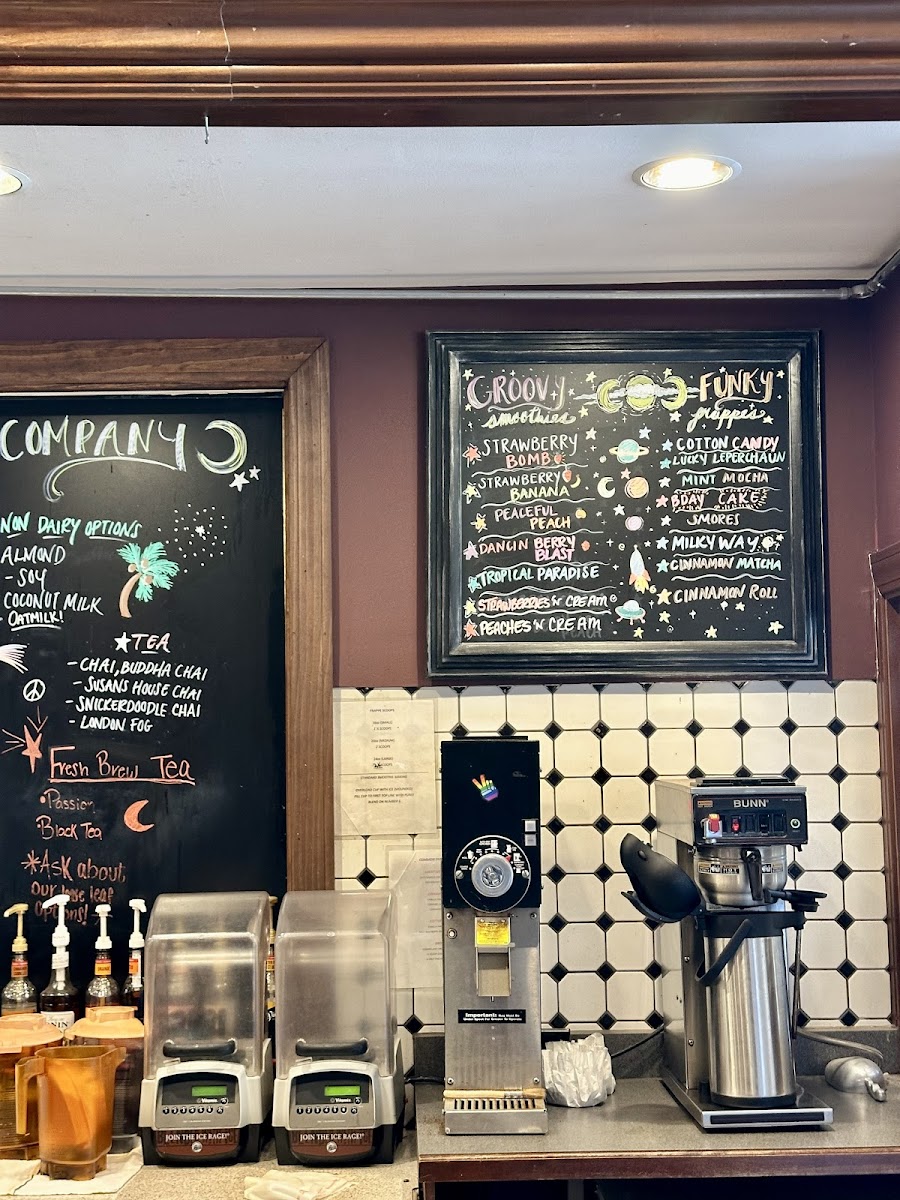 COMPANY
NON DAIRY OPTIONS
ALMOND
- SOY
COCONUT MILK
- OATMILK!
TEA
- CHAI, BUDDHA CHAI
- SUSANS HOUSE CHAI
- SNICKERDOODLE CHAI
- LONDON FOG
Fresh Brew Tea
Passion
Black Tea
*Ask about
our loose leaf
options!
GROOVY
smoothies
STRAWBERRY
BOMB
STRAWBERRY
BANANA
PEACEFUL
PEACH
DANCIN BERRY
BLAST
TROPICAL PARADISE
STRAWBERRIES N' CREAM
PEACHES 'N' CREAM
FUNKY
frappes
COTTON CANDY
LUCKY LEPERCHAUN
MINT MOCHA
BDAY CAKE
SMORES
MILKY WAY
CINNAMON MATCHA
CINNAMON ROLL
BUNN
Important:
Vitamix
JOIN THE ICE RAGE!
Vitamix
JOIN THE ICE RAGE!